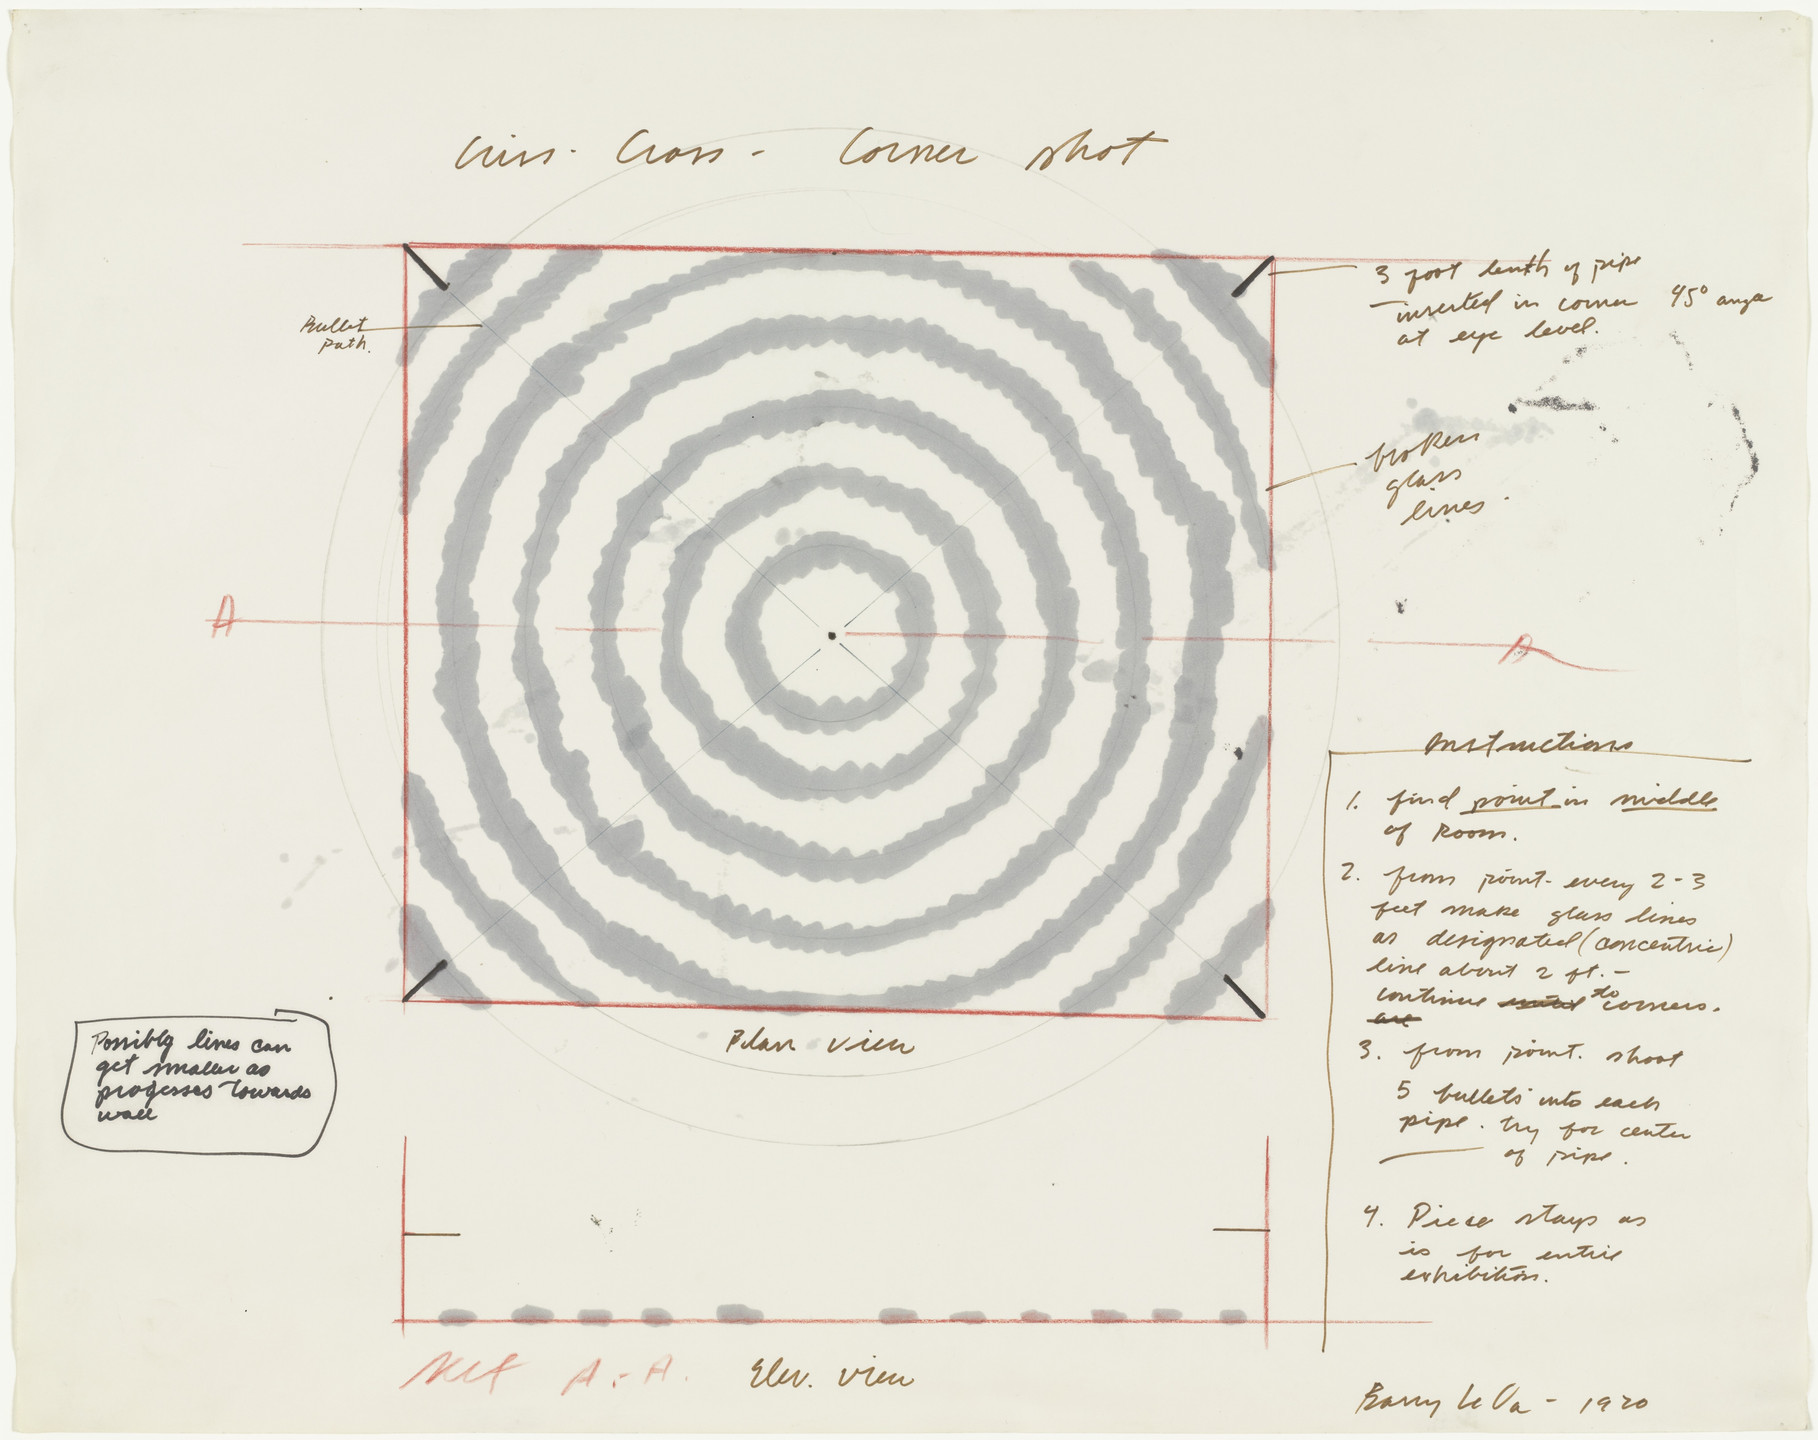 Criss - Cross - Corner shot
Bullet
path.
3 foot lenth of pipe
inserted in corner 45° ange
at eye level.
broken
glass
lines.
A
A
Instructions
1. find point in middle
of Room.
2. from point - every 2-3
feet make glass lines
as designated (concentric)
line about 2 ft. -
continue to corners.
3. from point. shoot
5 bullets into each
pipe. try for center
of pipe.
4. Piece stays as
is for entire
exhibition.
Plan view
Possibly lines can
get smaller as
progesses towards
wall
A-A. Elev. view
Barry Le Va - 1970